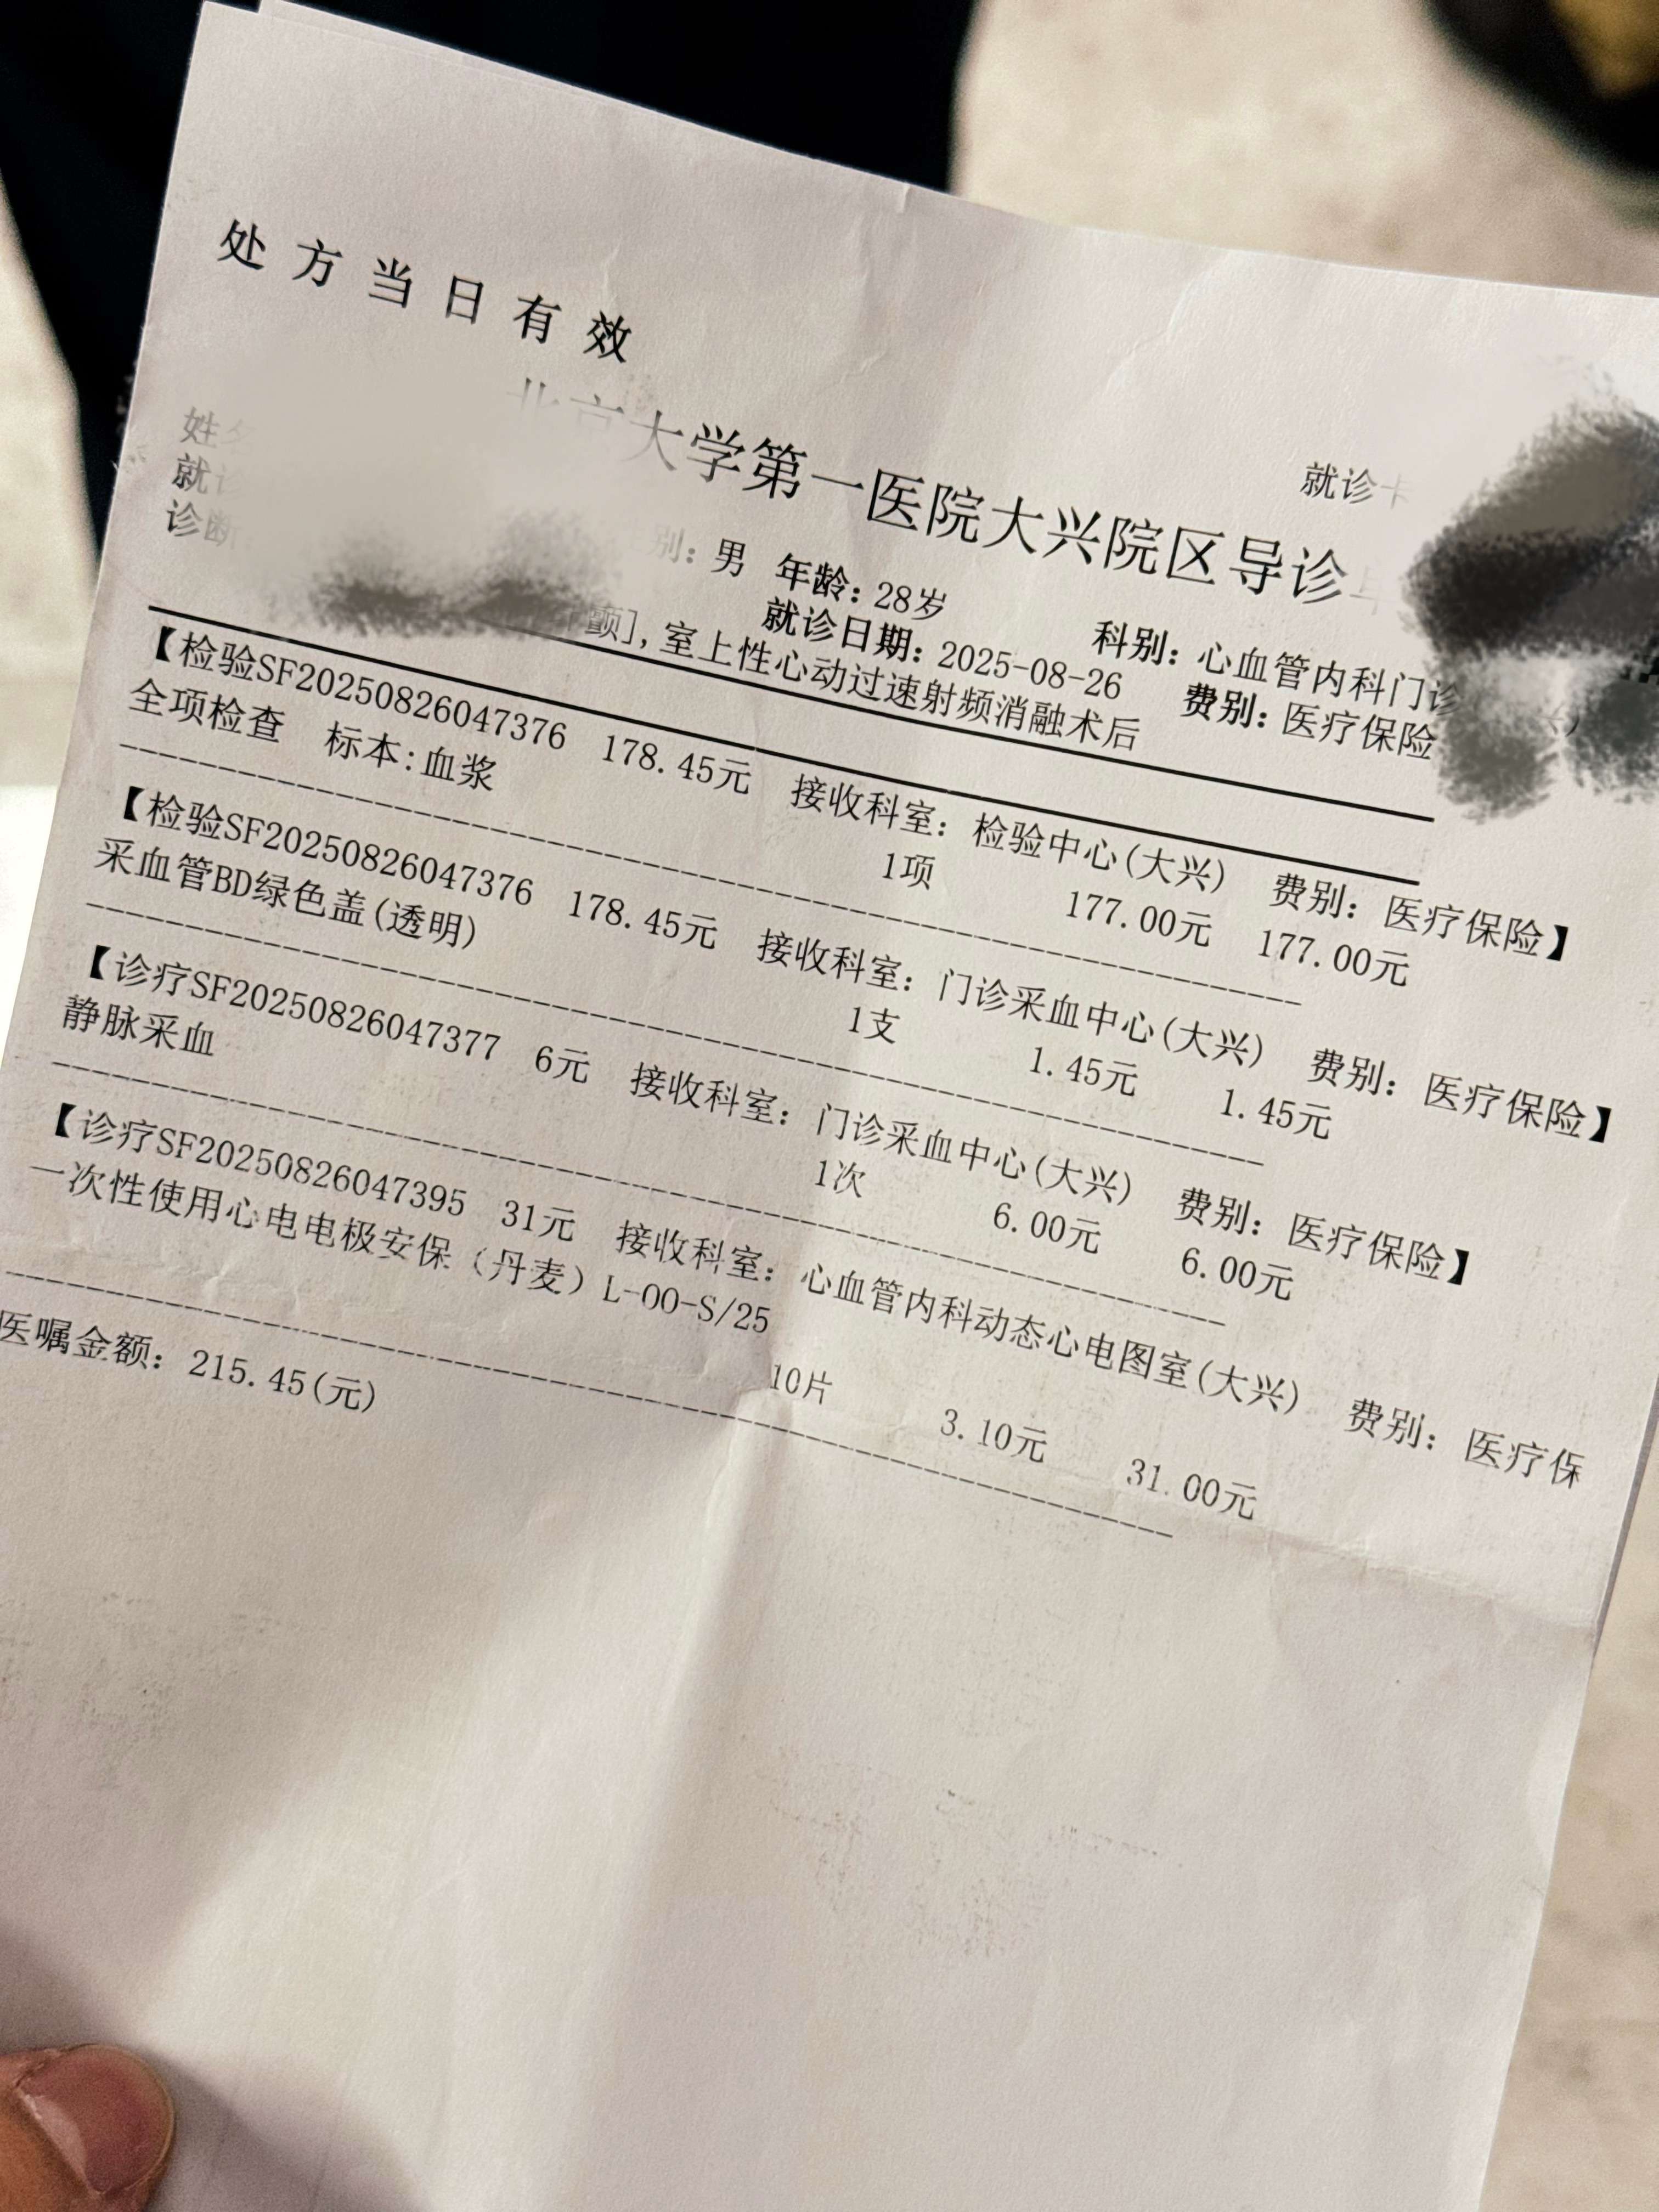 处方当日有效
大学第一医院大兴院区导诊
就诊
姓
就
别：男 年龄：28岁 科别：心血管内科门诊
就诊日期：2025-08-26 费别：医疗保险
诊断 [颤],室上性心动过速射频消融术后
【检验SF20250826047376 178.45元 接收科室：检验中心(大兴) 费别：医疗保险】
全项检查 标本:血浆 1项 177.00元 177.00元
【检验SF20250826047376 178.45元 接收科室：门诊采血中心(大兴) 费别：医疗保险】
采血管BD绿色盖(透明) 1支 1.45元 1.45元
【诊疗SF20250826047377 6元 接收科室：门诊采血中心(大兴) 费别：医疗保险】
静脉采血 1次 6.00元 6.00元
【诊疗SF20250826047395 31元 接收科室：心血管内科动态心电图室(大兴) 费别：医疗保
一次性使用心电电极安保（丹麦）L-00-S/25 10片 3.10元 31.00元
医嘱金额：215.45(元)